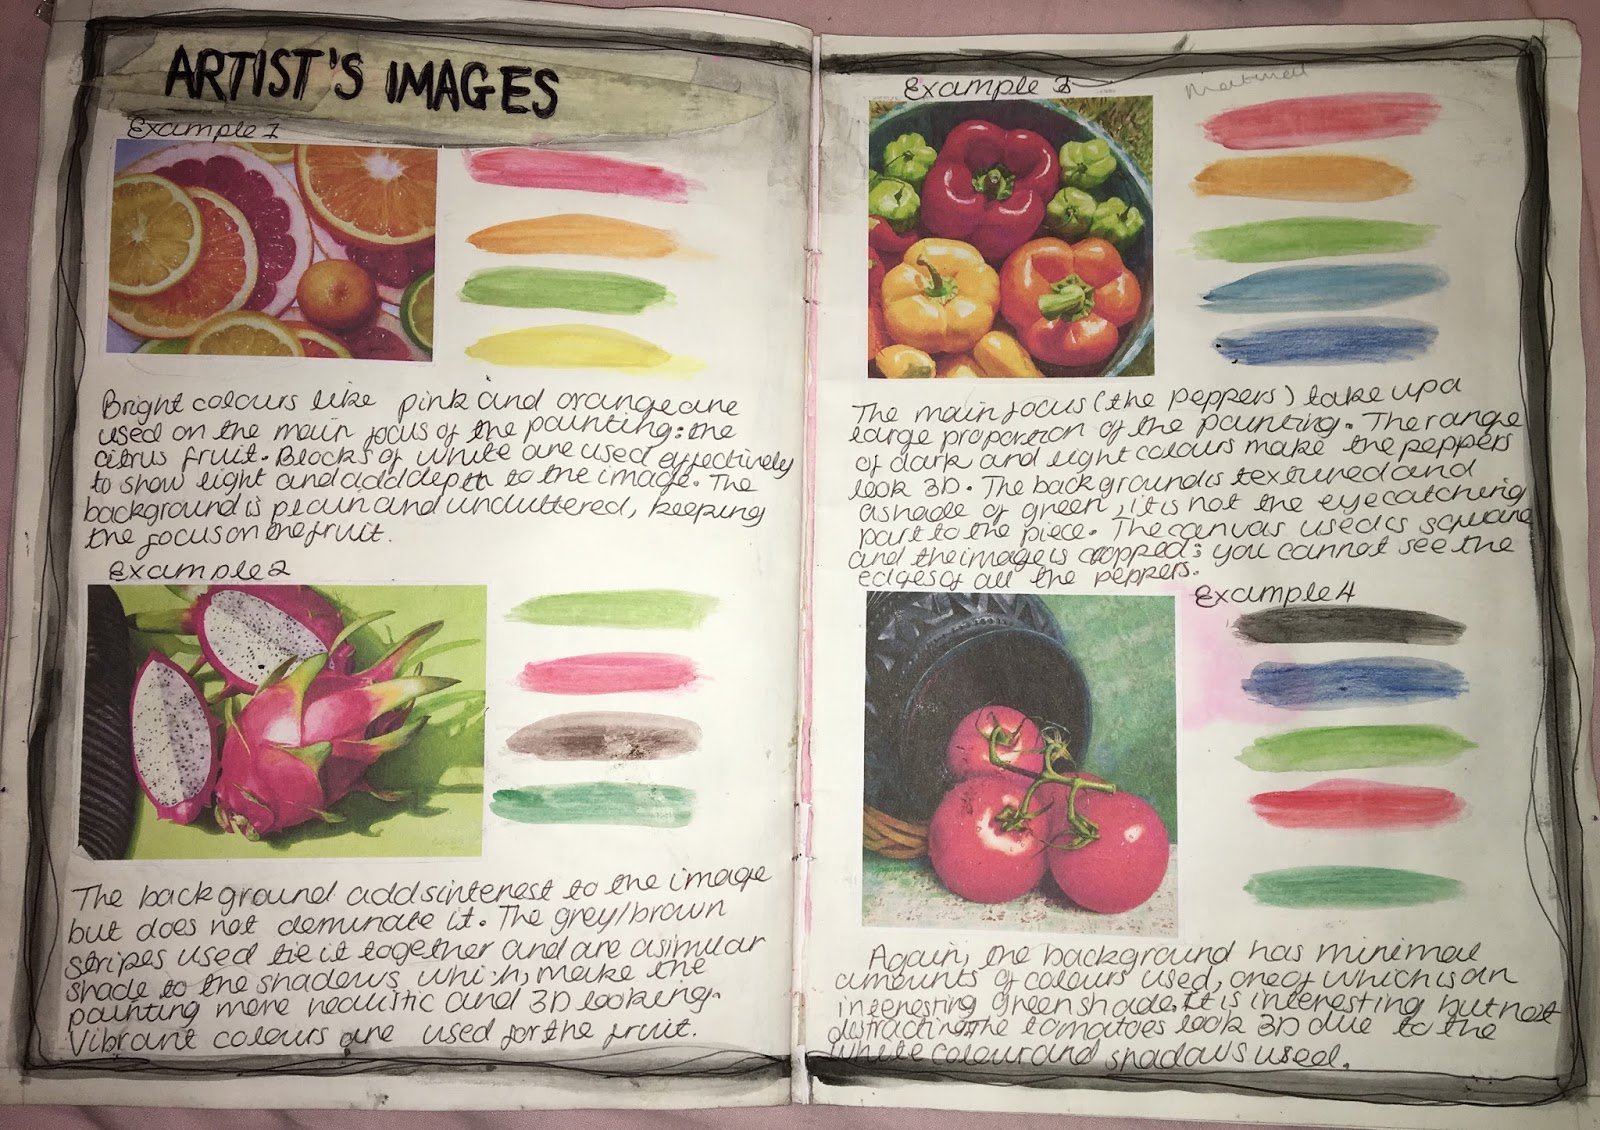 ARTIST'S IMAGES
Example 1
Bright colours like pink and orange are
used on the main focus of the painting: the
citrus fruit. Blocks of white are used effectively
to show light and add depth to the image. The
background is plain and uncluttered, keeping
the focus on the fruit.
Example 2
The background adds interest to the image
but does not dominate it. The grey/brown
stripes used tie it together and are a similar
shade to the shadows which, make the
painting more realistic and 3D looking.
Vibrant colours are used for the fruit.
Example 3
The main focus (the peppers) take up a
large proportion of the painting. The range
of dark and light colours make the peppers
look 3D. The background is textured and
a shade of green, it is not the eyecatching
part to the piece. The canvas used is square
and the image is cropped: you cannot see the
edges of all the peppers.
Example 4
Again, the background has minimal
amounts of colours used, one of which is an
interesting green shade. It is interesting but not
distracting. The tomatoes look 3D due to the
white colour and shadows used.